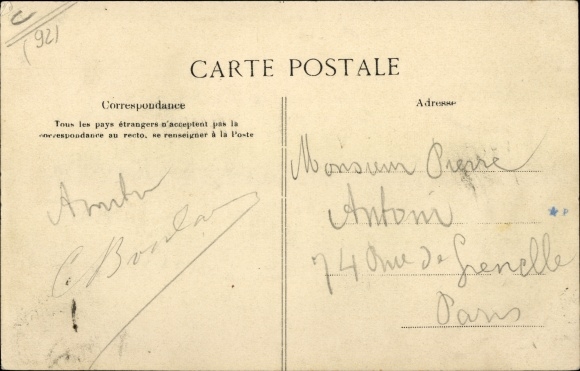 (92)
CARTE POSTALE
Correspondance
Tous les pays étrangers n'acceptent pas la
correspondance au recto, se renseigner à la Poste
Adresse
Monsieur Pierre
Antoni
74 Rue de Grenelle
Paris